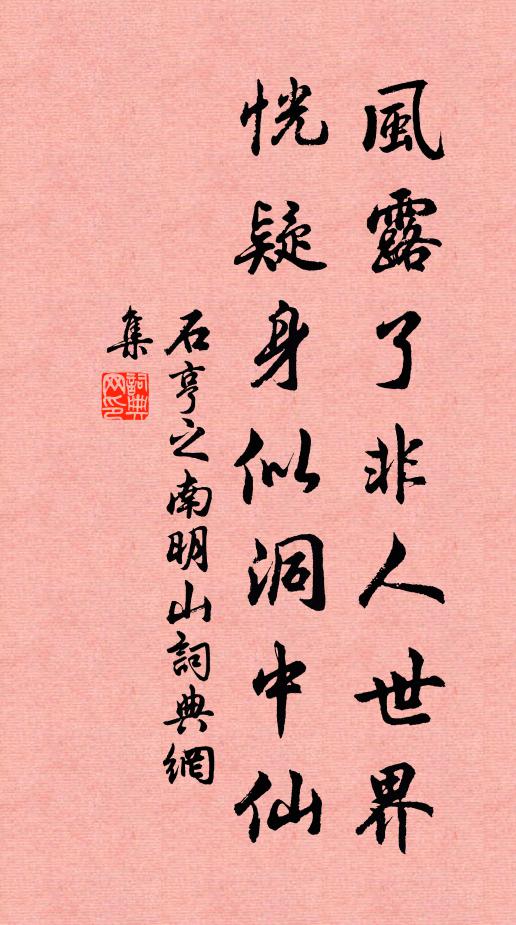 風露了非人世界
恍疑身似洞中仙
石亨之南明山詞典網
集
詞典网印